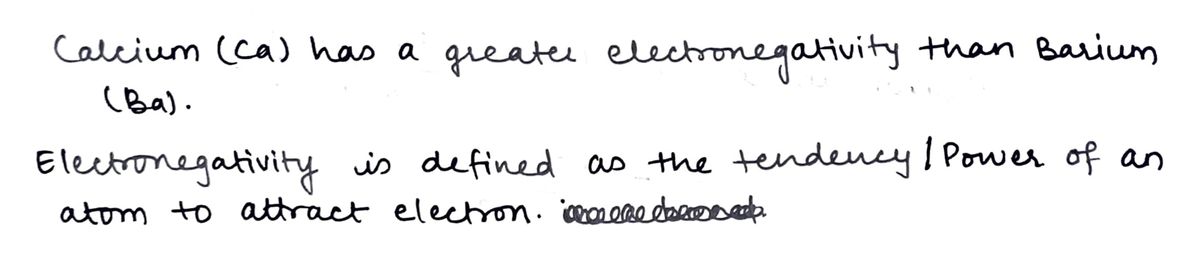 Calcium (Ca) has a greater electronegativity than Barium
(Ba).
Electronegativity is defined as the tendency / Power of an
atom to attract electron.